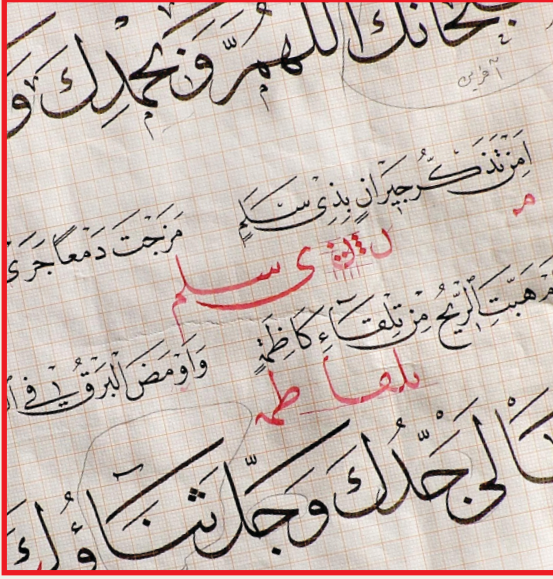 سبحانك اللهمّ وبحمدك و
آفرین
امن تذكّر جيران بذي سلم مزجت دمعا جرى
سلم
هبّت الريح من تلقاء كاظمة واومض البرق في
تلقا ظمة
الى جدّك وجلّ ثناؤك